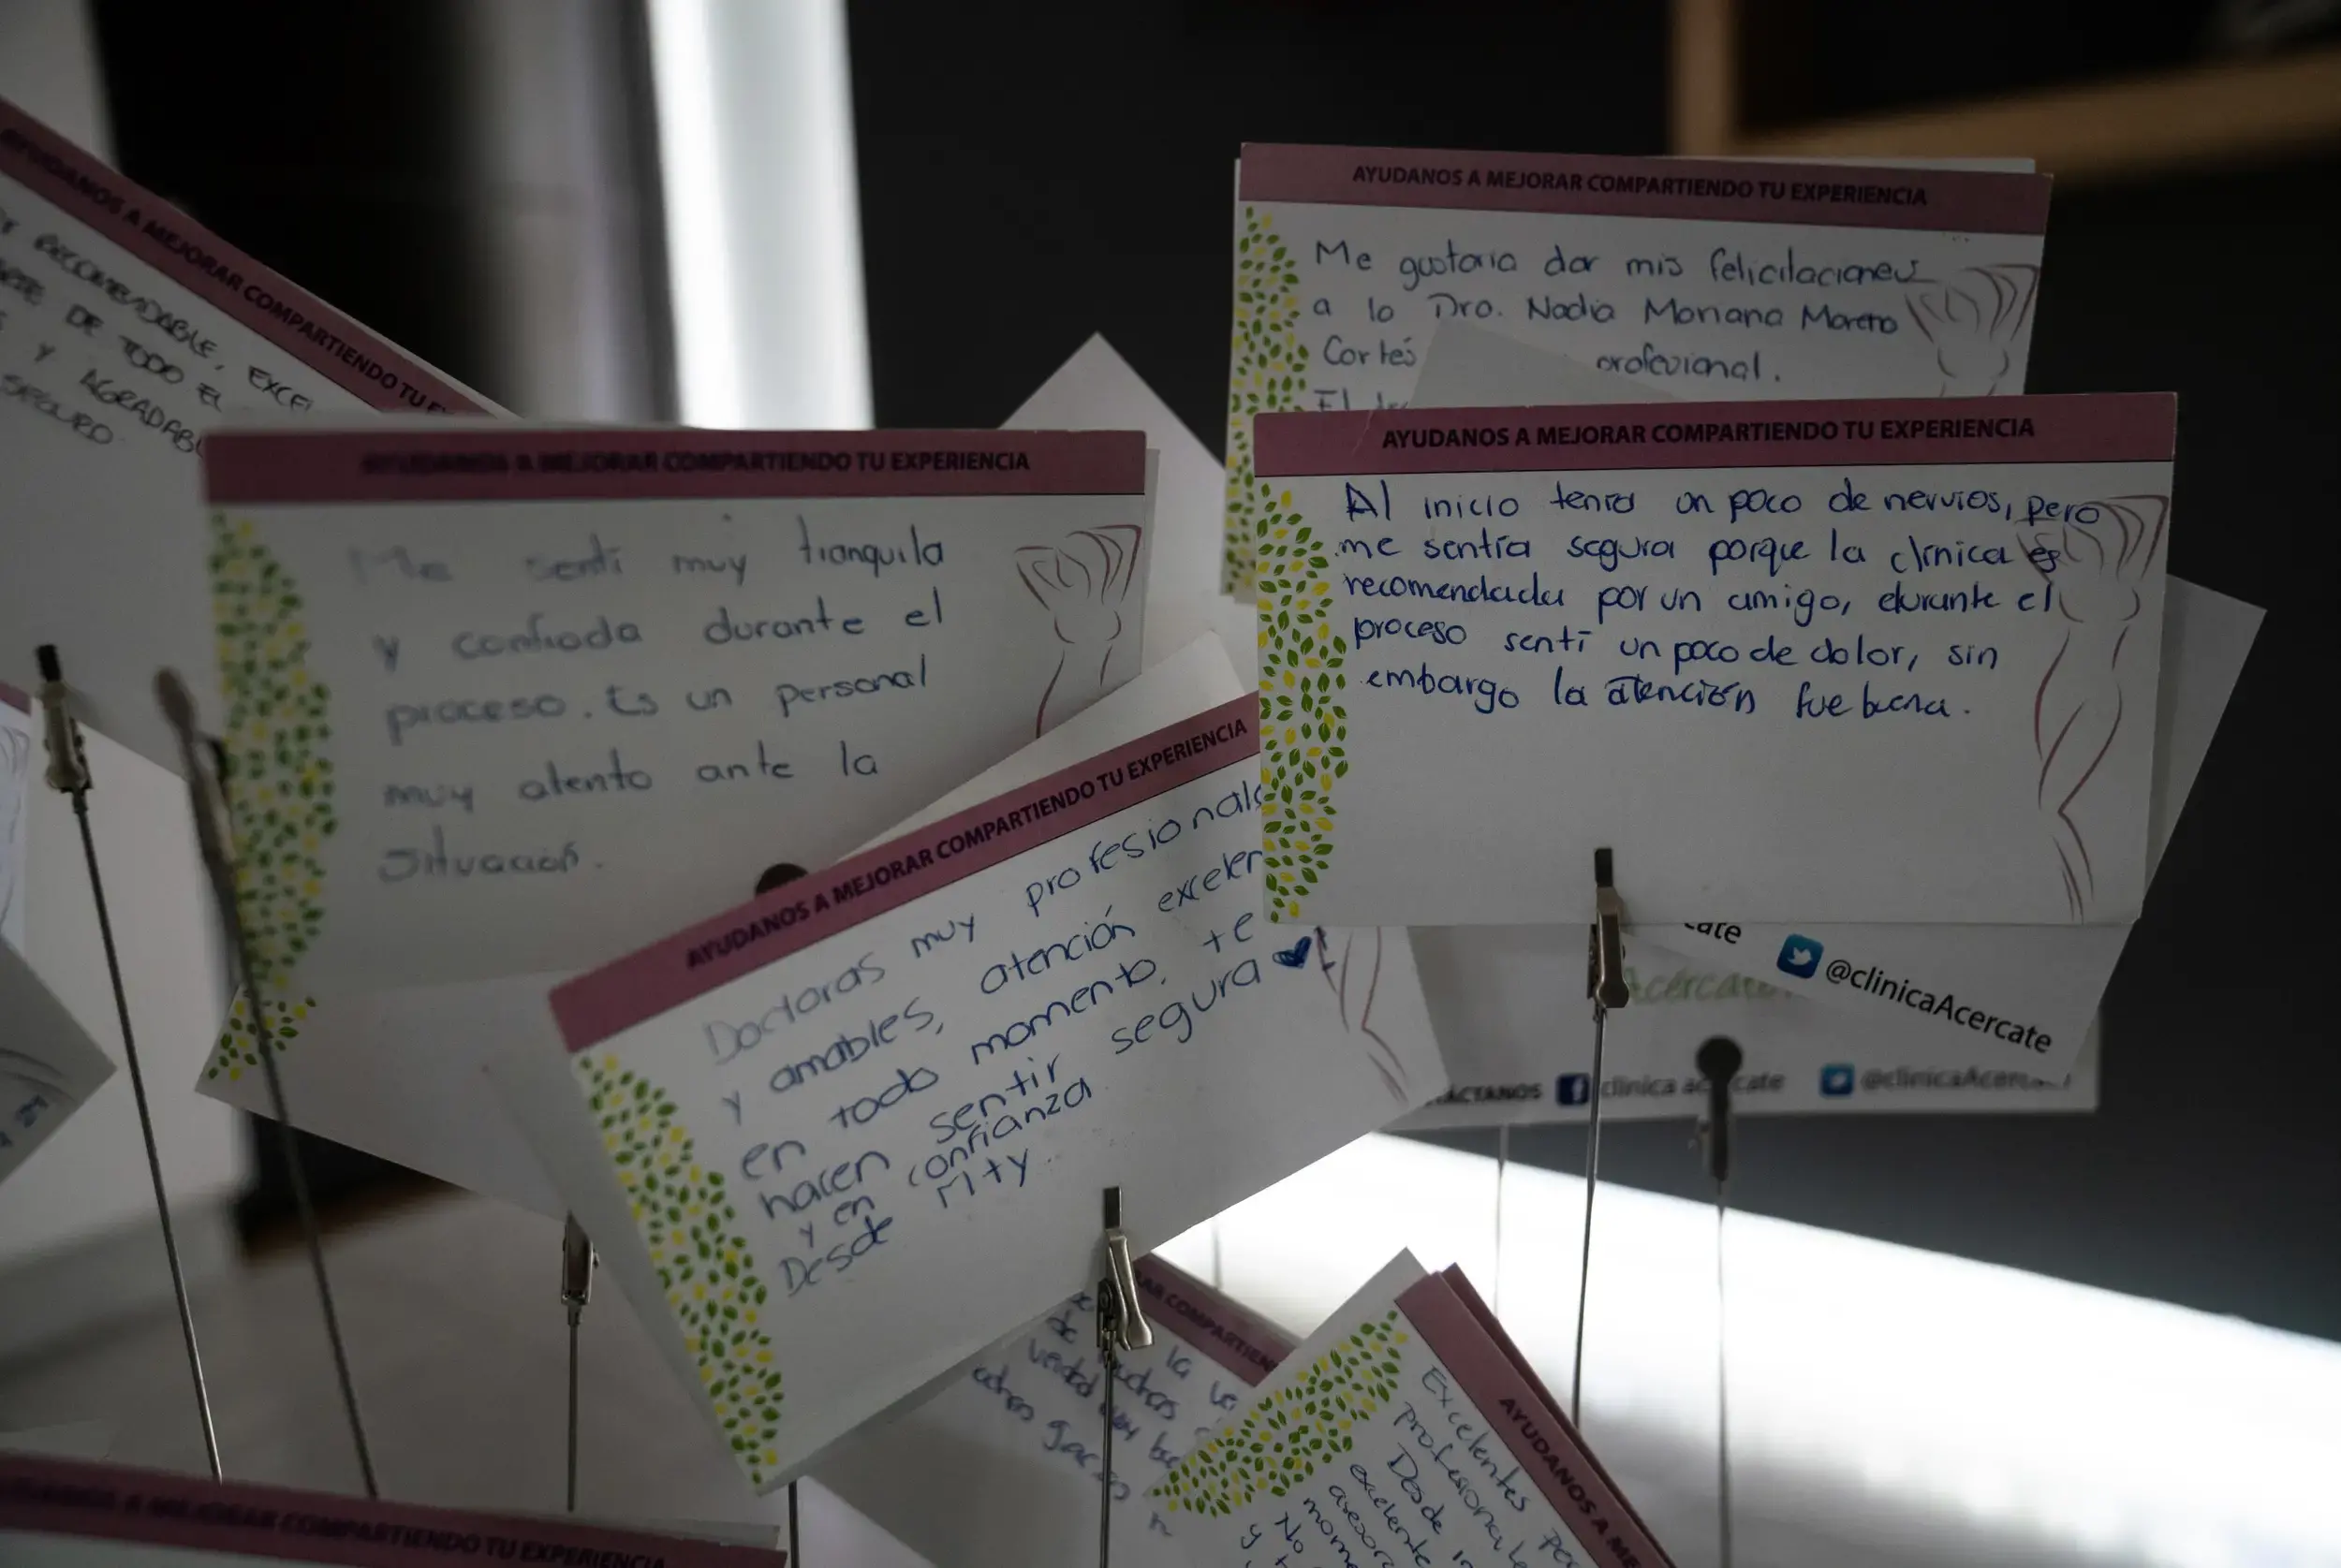 AYUDANOS A MEJORAR COMPARTIENDO TU
RECOMENDABLE,
DE TODO EL
Y AGRADAB
SEGURO
AYUDANOS A MEJORAR COMPARTIENDO TU EXPERIENCIA
Me sentí muy tranquila
y confiada durante el
proceso. Es un personal
muy atento ante la
situación.
AYUDANOS A MEJORAR COMPARTIENDO TU EXPERIENCIA
Me gustaria dar mis felicitaciones
a la Dra. Nadia Mariana Moreno
Cortés profecional.
El
AYUDANOS A MEJORAR COMPARTIENDO TU EXPERIENCIA
Al inicio tenia un poco de nervios, pero
me sentía segura porque la clínica es
recomendada por un amigo, durante el
proceso sentí un poco de dolor, sin
embargo la atención fue buena.
AYUDANOS A MEJORAR COMPARTIENDO TU EXPERIENCIA
Doctoras muy profesionale
y amables, atención excelen
en todo momento, te
hacen sentir segura
y en confianza
Desde MTY
cate @clinicaAcercate
Acércate
CTANOS clinica ac cate @clinicaAcer
COMPARTIEN
de la
verdad muy
AYUDANOS A ME
Excelentes
profesionale
Desde
excelente
asesor
mome
No
y
AYUDANOS A MEJORAR COMPARTIENDO TU EXPERIENCIA